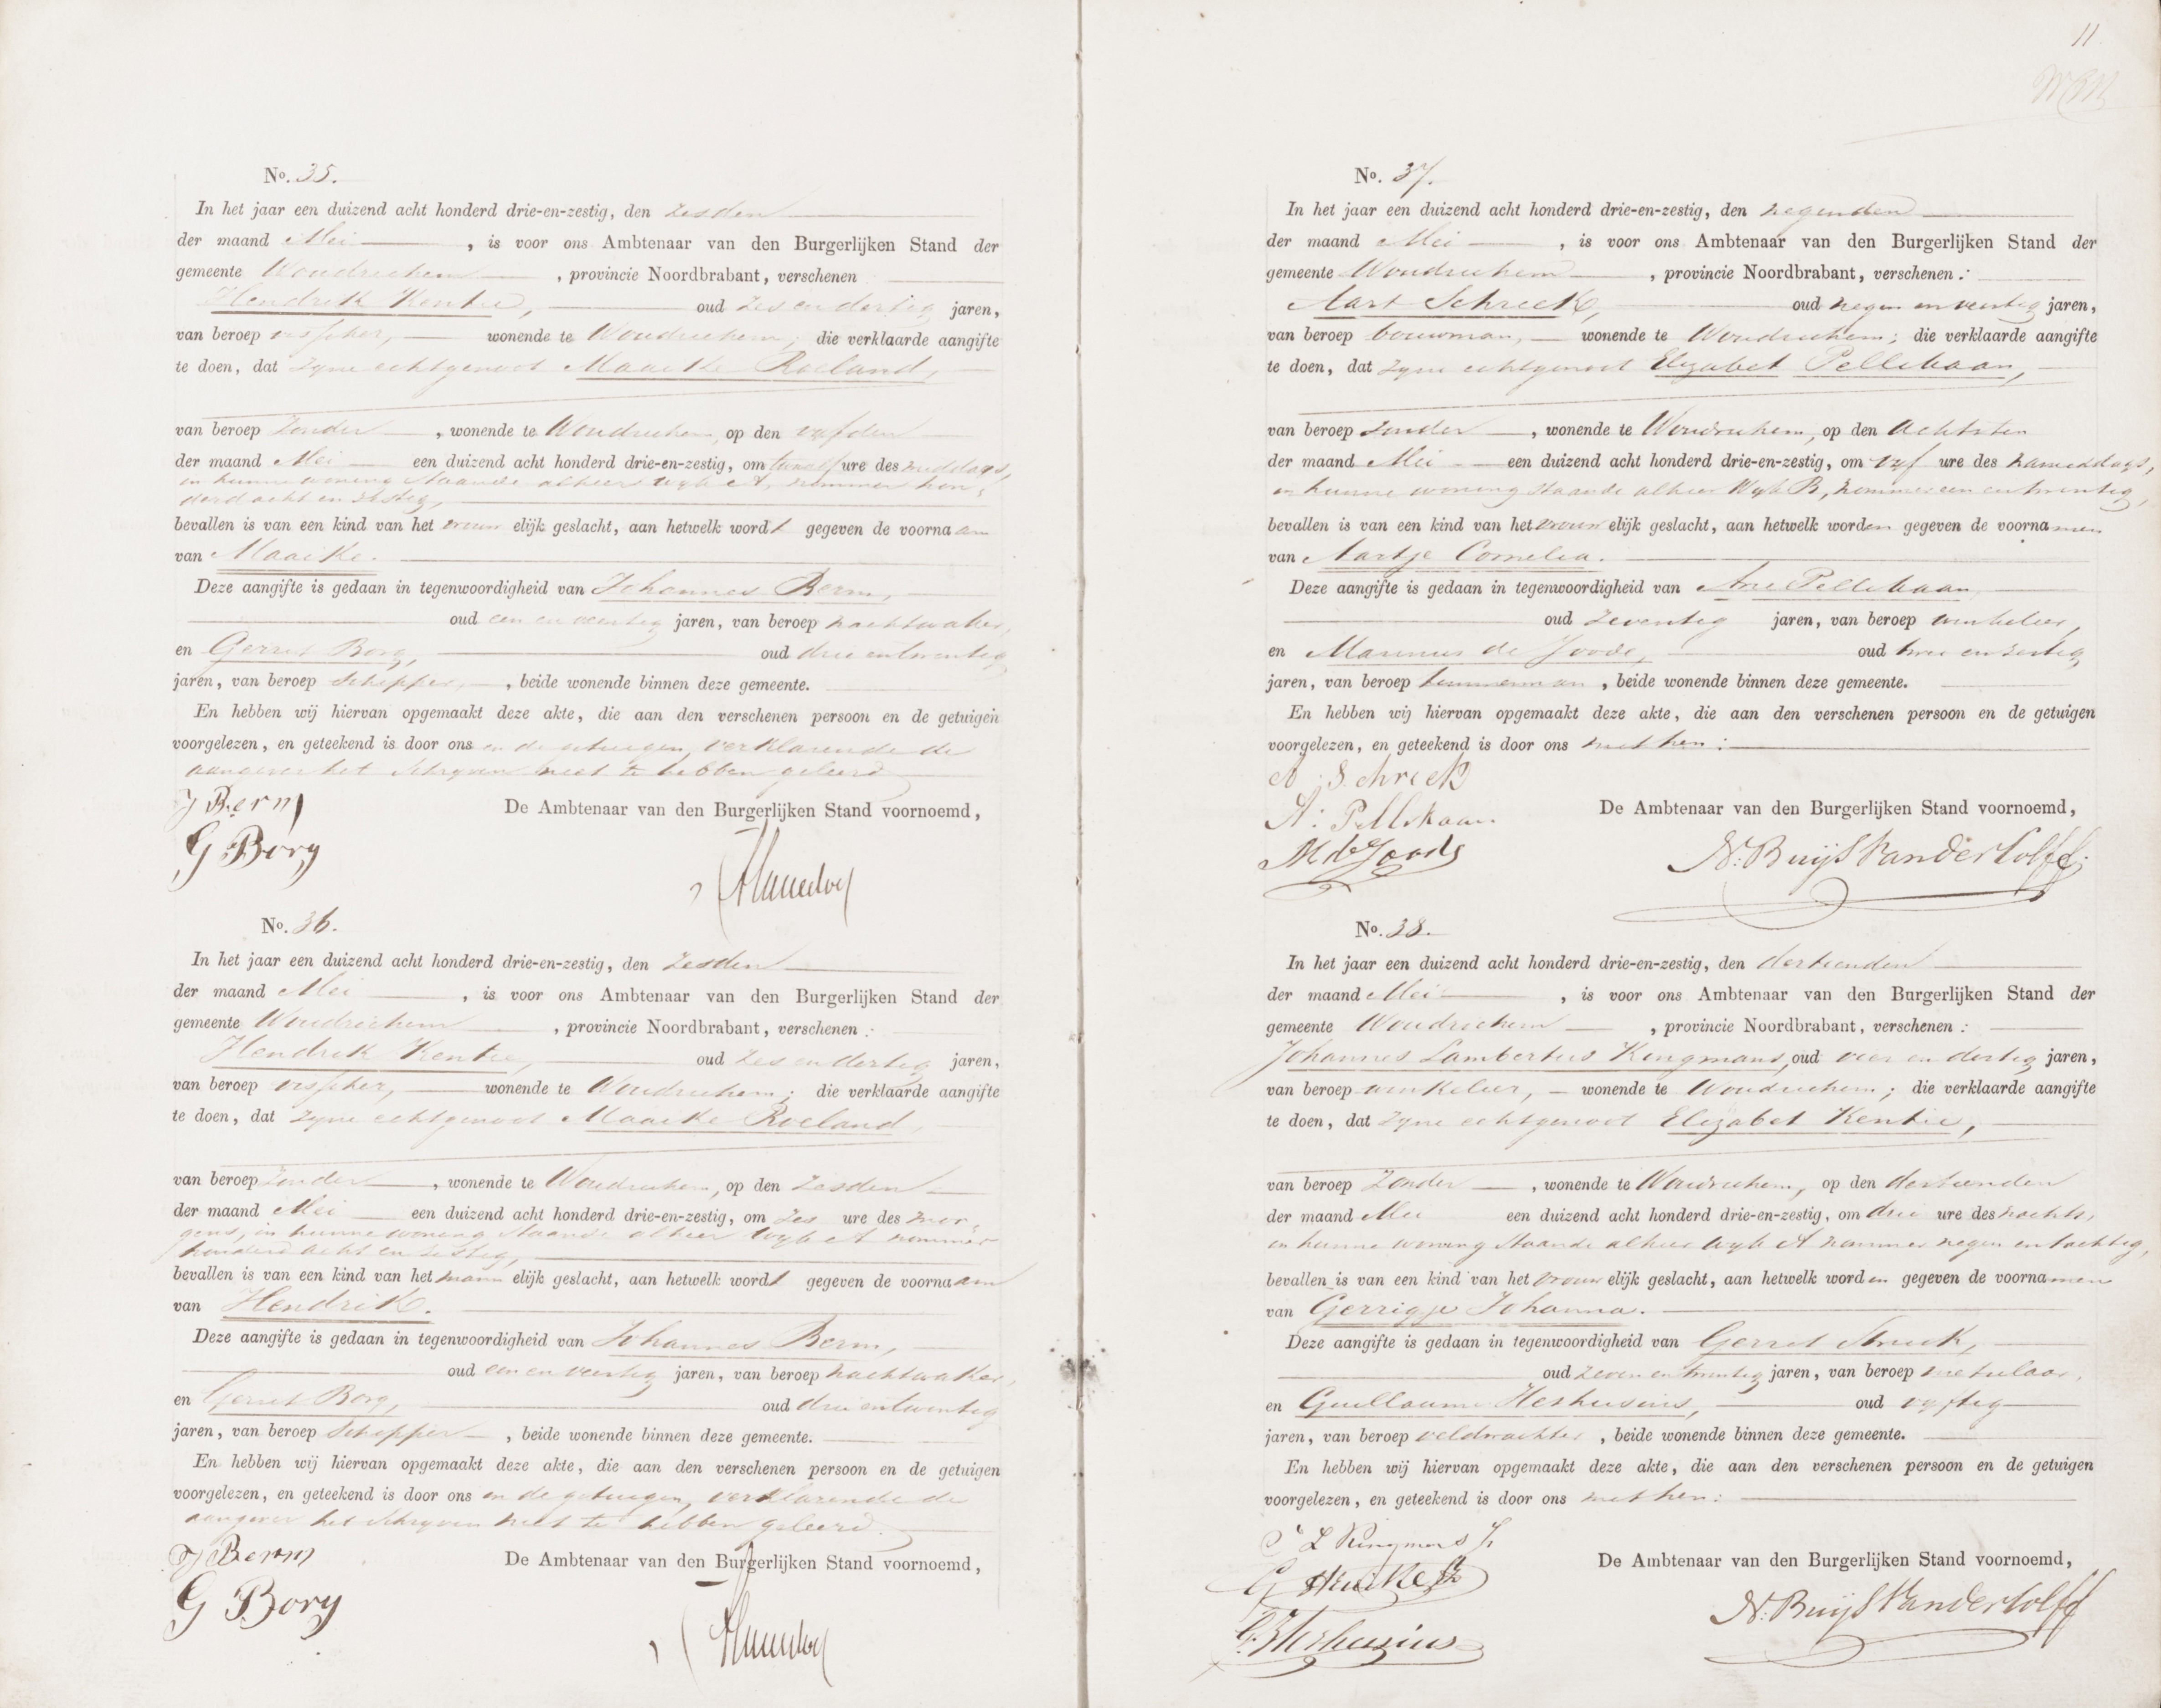 No. 35.
In het jaar een duizend acht honderd drie-en-zestig, den zesden
der maand Mei, is voor ons Ambtenaar van den Burgerlijken Stand der
gemeente Woudrichem, provincie Noordbrabant, verschenen
Hendrik Kentie, oud zes en dertig jaren,
van beroep visscher, wonende te Woudrichem; die verklaarde aangifte
te doen, dat zyne echtgenoot Maaike Roeland,
van beroep zonder, wonende te Woudrichem, op den vyfden
der maand Mei een duizend acht honderd drie-en-zestig, om twaalf ure des middags,
in hunne woning staande alhier wyk A, nommer hon-
derd acht en zestig,
bevallen is van een kind van het vrouwelijk geslacht, aan hetwelk wordt gegeven de voornaam
van Maaike.
Deze aangifte is gedaan in tegenwoordigheid van Johannes Berm,
oud een en veertig jaren, van beroep nachtwaker,
en Gerrit Borg, oud drie en twintig
jaren, van beroep schipper, beide wonende binnen deze gemeente.
En hebben wij hiervan opgemaakt deze akte, die aan den verschenen persoon en de getuigen
voorgelezen, en geteekend is door ons en de getuigen, verklarende de
aangever het schryven niet te hebben geleerd
J Berm
De Ambtenaar van den Burgerlijken Stand voornoemd,
G Borg
No. 36.
In het jaar een duizend acht honderd drie-en-zestig, den zesden
der maand Mei, is voor ons Ambtenaar van den Burgerlijken Stand der
gemeente Woudrichem, provincie Noordbrabant, verschenen :
Hendrik Kentie, oud zes en dertig jaren,
van beroep visscher, wonende te Woudrichem; die verklaarde aangifte
te doen, dat zyne echtgenoot Maaike Roeland,
van beroep zonder, wonende te Woudrichem, op den zesden
der maand Mei een duizend acht honderd drie-en-zestig, om zes ure des mor-
gens, in hunne woning staande alhier wyk A nommer
honderd acht en zestig,
bevallen is van een kind van het mannelijk geslacht, aan hetwelk wordt gegeven de voornaam
van Hendrik.
Deze aangifte is gedaan in tegenwoordigheid van Johannes Berm,
oud een en veertig jaren, van beroep nachtwaker,
en Gerrit Borg, oud drie en twintig
jaren, van beroep schipper, beide wonende binnen deze gemeente.
En hebben wij hiervan opgemaakt deze akte, die aan den verschenen persoon en de getuigen
voorgelezen, en geteekend is door ons en de getuigen, verklarende de
aangever het schryven niet te hebben geleerd.
J Berm
De Ambtenaar van den Burgerlijken Stand voornoemd,
G Borg
11
No. 37.
In het jaar een duizend acht honderd drie-en-zestig, den negenden
der maand Mei, is voor ons Ambtenaar van den Burgerlijken Stand der
gemeente Woudrichem, provincie Noordbrabant, verschenen :
Aart Schreek, oud negen en veertig jaren,
van beroep bouwman, wonende te Woudrichem; die verklaarde aangifte
te doen, dat zyne echtgenoot Elizabet Pellekaan,
van beroep zonder, wonende te Woudrichem, op den achtsten
der maand Mei een duizend acht honderd drie-en-zestig, om vyf ure des namiddags,
in hunne woning staande alhier Wyk B, nommer een en twintig,
bevallen is van een kind van het vrouwelijk geslacht, aan hetwelk worden gegeven de voornamen
van Aartje Cornelia.
Deze aangifte is gedaan in tegenwoordigheid van Arie Pellekaan,
oud zeventig jaren, van beroep winkelier,
en Marinus de Joode, oud twee en zestig
jaren, van beroep timmerman, beide wonende binnen deze gemeente.
En hebben wij hiervan opgemaakt deze akte, die aan den verschenen persoon en de getuigen
voorgelezen, en geteekend is door ons met hen:
A. Schreek
A: Pellekaan
De Ambtenaar van den Burgerlijken Stand voornoemd,
M de Joode
N: Buijs van der Colff
No. 38.
In het jaar een duizend acht honderd drie-en-zestig, den dertienden
der maand Mei, is voor ons Ambtenaar van den Burgerlijken Stand der
gemeente Woudrichem, provincie Noordbrabant, verschenen :
Johannes Lambertus Kingmans, oud vier en dertig jaren,
van beroep winkelier, wonende te Woudrichem; die verklaarde aangifte
te doen, dat zyne echtgenoot Elizabet Kentie,
van beroep zonder, wonende te Woudrichem, op den dertienden
der maand Mei een duizend acht honderd drie-en-zestig, om drie ure des nachts,
in hunne woning staande alhier wyk A nommer negen en tachtig,
bevallen is van een kind van het vrouwelijk geslacht, aan hetwelk worden gegeven de voornamen
van Gerrigje Johanna.
Deze aangifte is gedaan in tegenwoordigheid van Gerret
oud zeven en twintig jaren, van beroep metselaar,
en Guillaume Heshusius, oud vyftig
jaren, van beroep veldwachter, beide wonende binnen deze gemeente.
En hebben wij hiervan opgemaakt deze akte, die aan den verschenen persoon en de getuigen
voorgelezen, en geteekend is door ons met hen:
De Ambtenaar van den Burgerlijken Stand voornoemd,
N: Buijs van der Colff
G. Heshusius